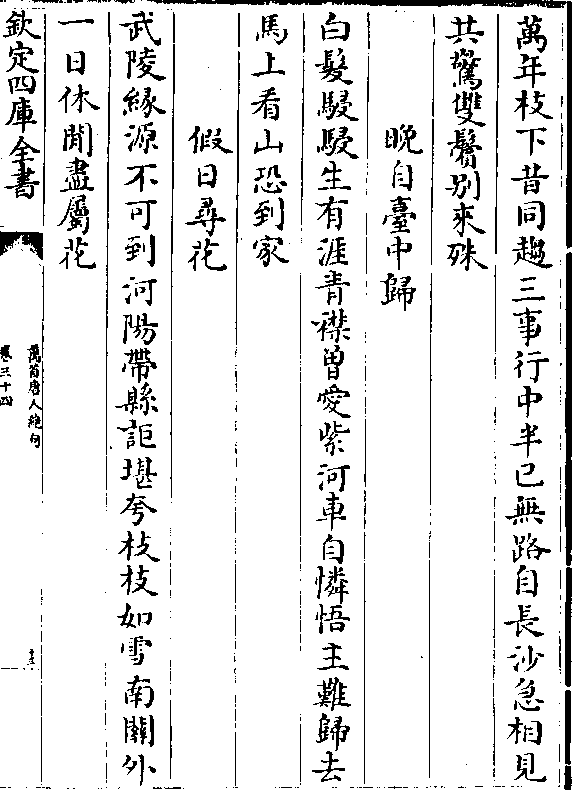 萬年枝下昔同趨三事行中半已無路自長沙急相見
共驚雙鬢別來殊
晚自臺中歸
白髮駸駸生有涯青襟曽愛紫河車自憐悟主難歸去
馬上看山恐到家
假日尋花
武陵緣源不可到河陽帶縣詎堪夸枝枝如雪南關外
一日休閒盡屬花
欽定四庫全書
萬首唐人絶句
卷三十四